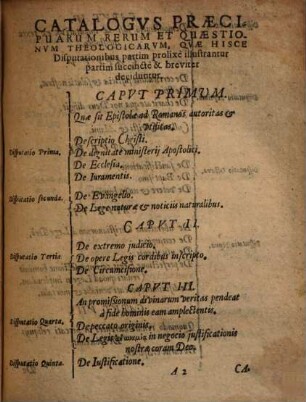 CATALOGVS PRÆCI-
PVARVM RERVM ET QVÆSTIO-
NVM THEOLOGICARVM, QVÆ HISCE
Disputationibus partim prolixè illustrantur
partim succinctè & breviter
deciduntur.
CAPVT PRIMVM.
Quæ sit Epistolæ ad Romanos autoritas &
utilitas.
Descriptio Christi.
Disputatio Prima. De dignitate ministerij Apostolici.
De Ecclesia.
De Iuramentis.
Disputatio secunda. De Evangelio.
De Lege naturæ & noticiis naturalibus.
CAPVT II.
De extremo judicio.
Disputatio Tertia. De opere Legis cordibus inscripto.
De Circumcisione.
CAPVT III.
An promissionum divinarum veritas pendeat
à fide hominis eam amplectentis.
Disputatio Quarta. De peccato originis.
De Legis in negocio justificationis
nostræ coram Deo.
Disputatio Quinta. De Iustificatione.
A 2 CA-